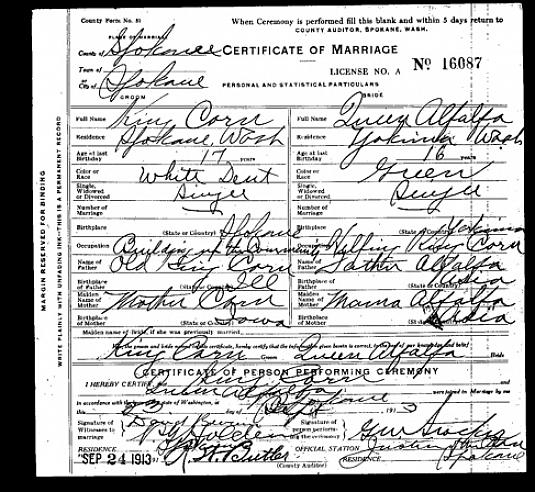 County Form No. 51
When Ceremony is performed fill this blank and within 5 days return to
COUNTY AUDITOR, SPOKANE, WASH.
PLACE OF MARRIAGE
County of Spokane
CERTIFICATE OF MARRIAGE
Town of
LICENSE NO. A No 16087
City of Spokane
PERSONAL AND STATISTICAL PARTICULARS
GROOM BRIDE
Full Name King Corn Full Name Queen Alfalfa
Residence Spokane, Wash Residence Yakima Wash
Age at last Birthday 17 years Age at last Birthday 16 years
Color or Race White Dent Color or Race Green
Single, Widowed or Divorced Single Single, Widowed or Divorced Single
Number of Marriage Number of Marriage
Birthplace (State or Country) Spokane Birthplace (State or Country) Yakima
Occupation Building up the Community Occupation Helping King Corn
Name of Father Old King Corn Name of Father Father Alfalfa
Birthplace of Father (State or Country) Ill Birthplace of Father
Maiden Name of Mother Mother Corn Maiden Name of Mother Mama Alfalfa
Birthplace of Mother (State or Country) Iowa Birthplace of Mother
Maiden name of bride, if she was previously married
King Corn Groom Queen Alfalfa Bride
CERTIFICATE OF PERSON PERFORMING CEREMONY
I HEREBY CERTIFY, that King Corn and
Queen Alfalfa were joined in Marriage by me
in accordance with the laws of the State of Washington, at Spokane
this 23 day of Sept 1913
Signature of Witnesses to marriage
Signature of person performing the ceremony
RESIDENCE Spokane
OFFICIAL STATION
SEP 24 1913
R. W. Butler
(County Auditor)
RESIDENCE Spokane
MARGIN RESERVED FOR BINDING
WRITE PLAINLY WITH UNFADING INK—THIS IS A PERMANENT RECORD